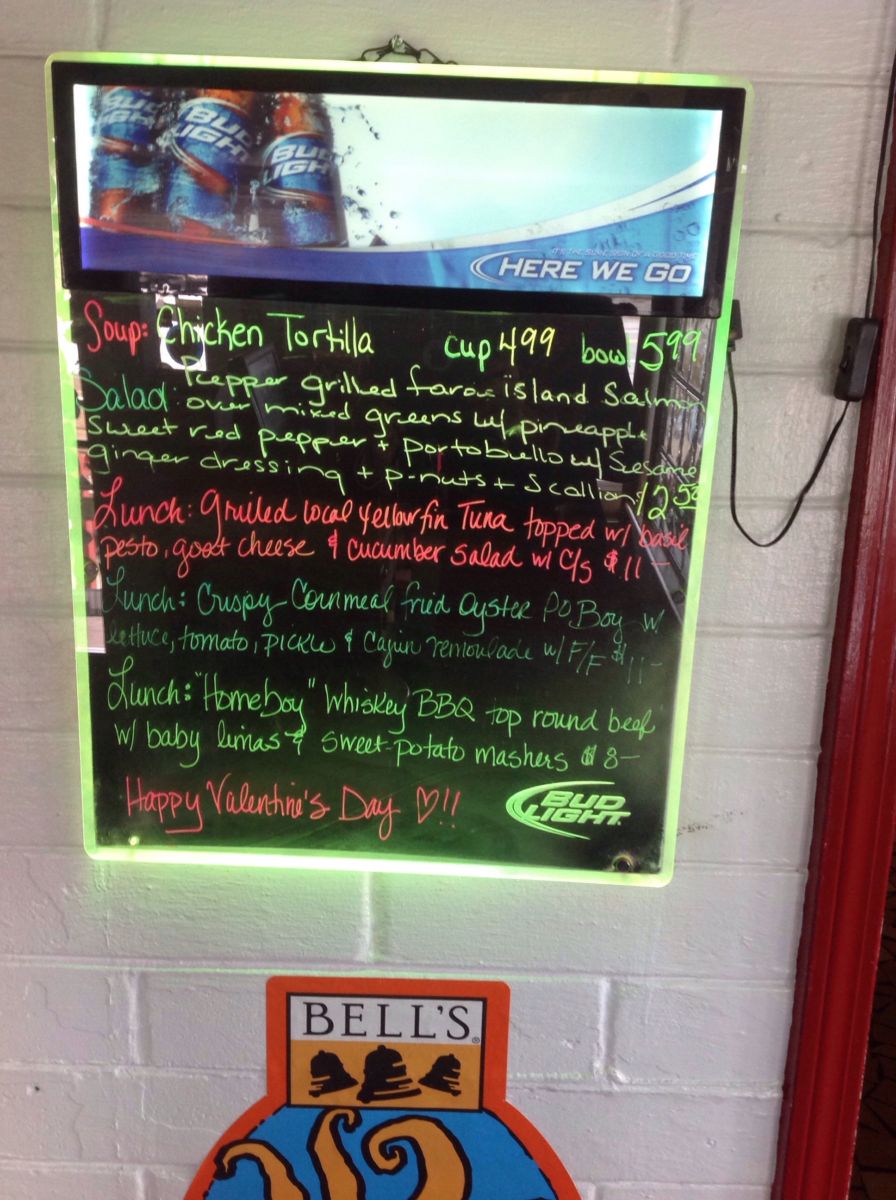 BUD LIGHT
BUD LIGHT
BUD LIGHT
IT'S THE SURE SIGN OF A GOOD TIME
HERE WE GO
Soup: Chicken Tortilla cup 4.99 bowl 5.99
Salad: Pepper grilled faroe island Salmon
over mixed greens w/ pineapple
Sweet red pepper + portobello w/ Sesame
ginger dressing + p-nuts + Scallions 12.50
Lunch: Grilled local yellowfin Tuna topped w/ basil
pesto, goat cheese & cucumber salad w/ C/S $11-
Lunch: Crispy Cornmeal fried Oyster Po Boy w/
lettuce, tomato, pickle & Cajun remoulade w/ F/F $11-
Lunch: "Homeboy" Whiskey BBQ top round beef
w/ baby limas & sweet-potato mashers $8-
Happy Valentine's Day ♡!!
BUD
LIGHT.
BELL'S®